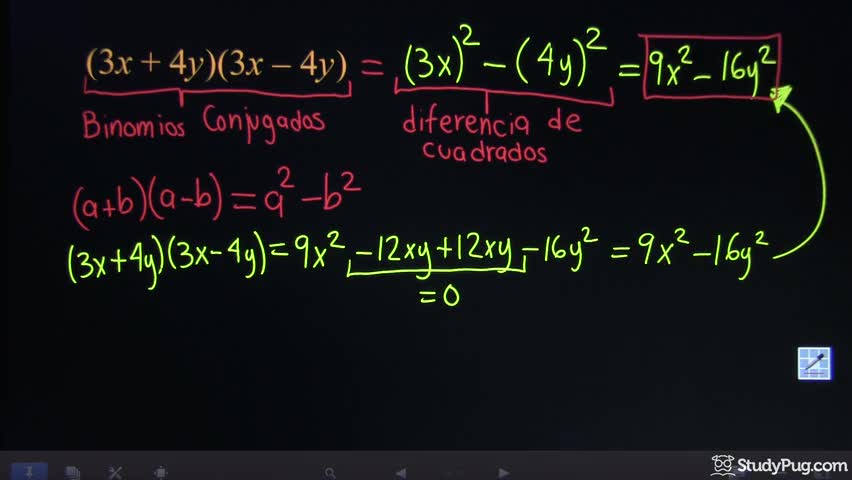 (3x + 4y)(3x – 4y) = (3x)² – (4y)² = 9x² – 16y²
Binomios Conjugados
diferencia de
cuadrados
(a+b)(a-b) = a² – b²
(3x+4y)(3x-4y) = 9x² – 12xy + 12xy – 16y² = 9x² – 16y²
= 0
StudyPug.com